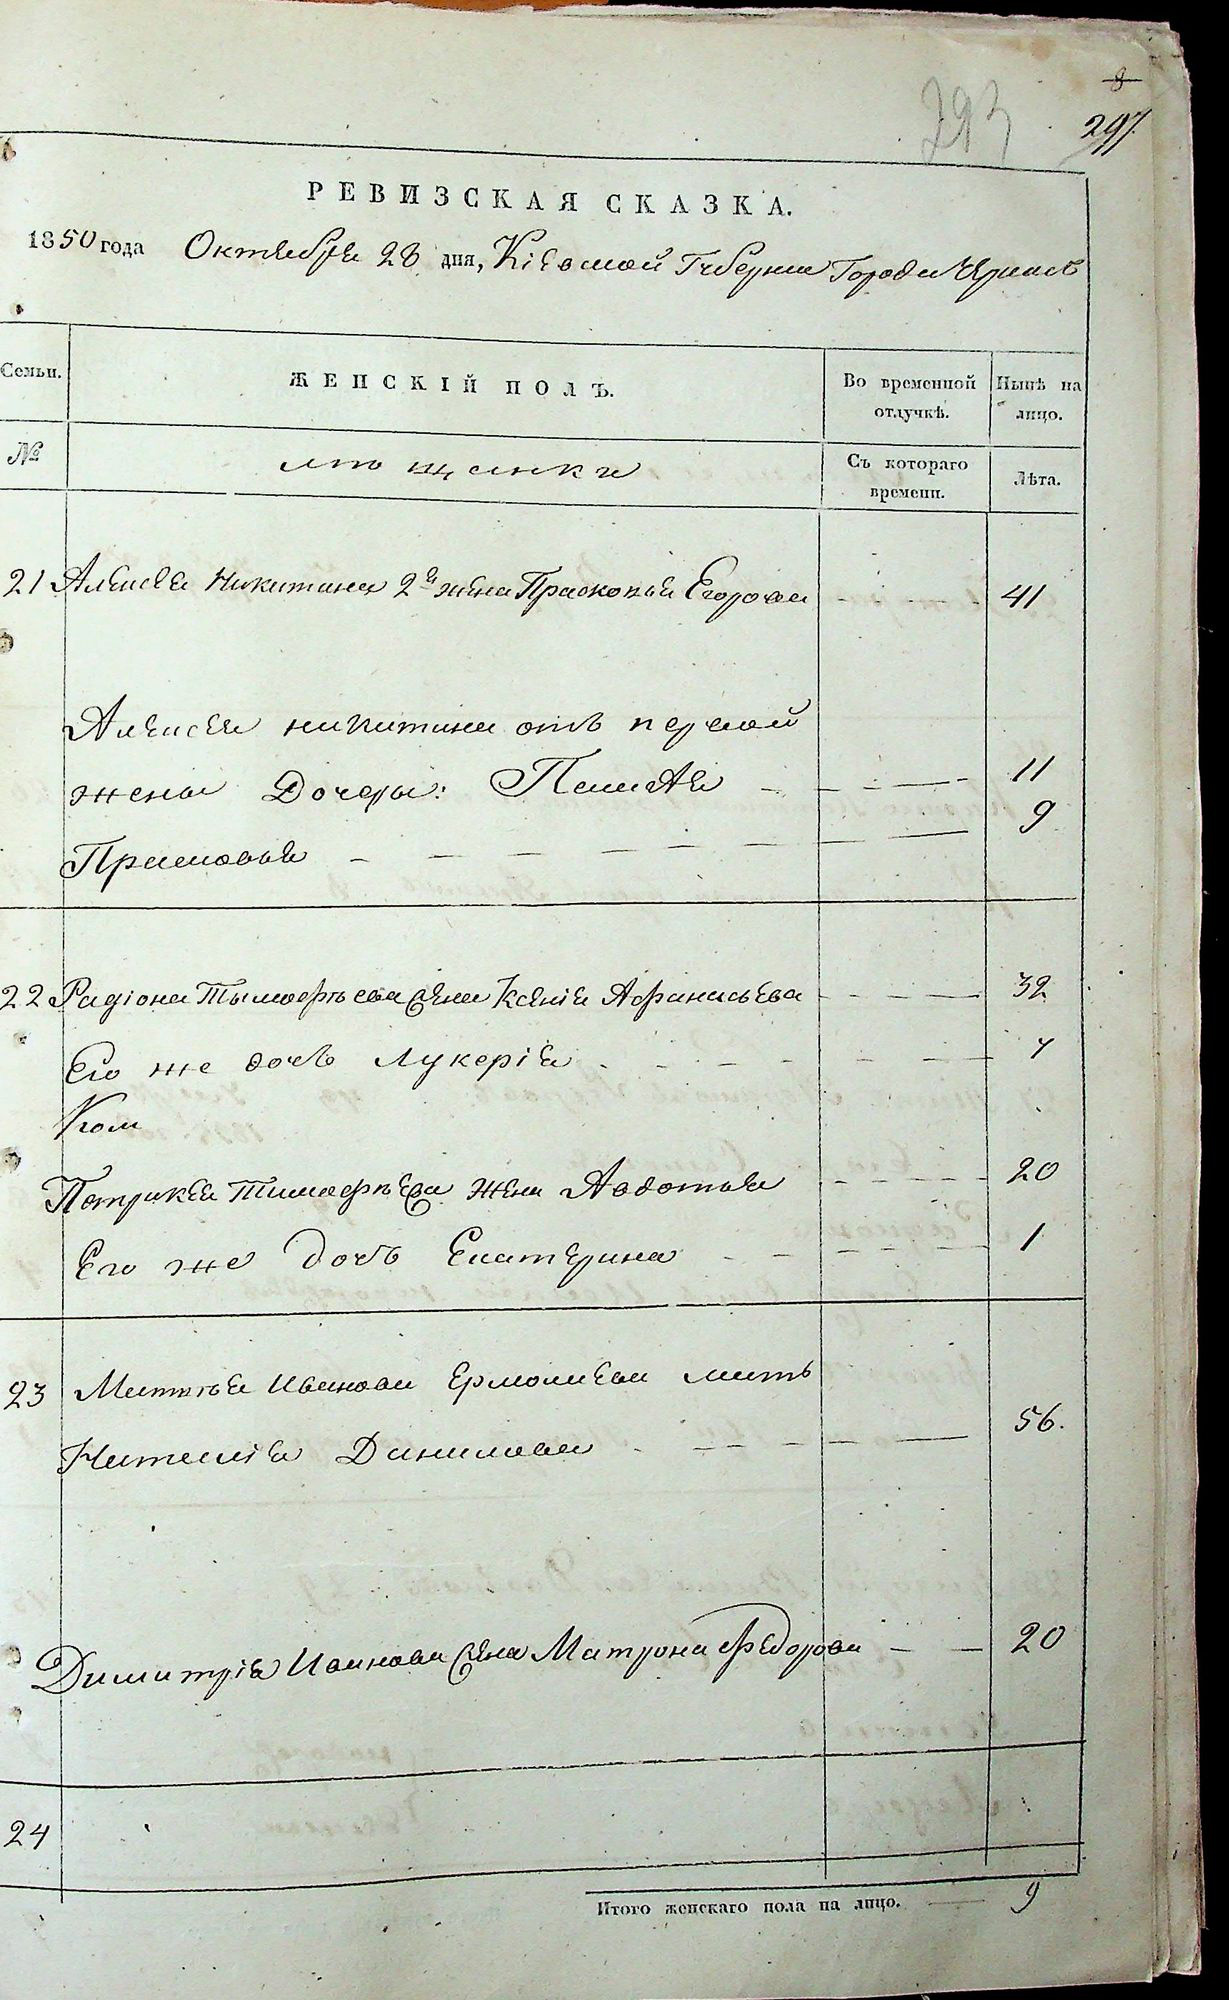 8
297
293
РЕВИЗСКАЯ СКАЗКА.
1850 года Октября 28 дня, Кіевской Губерніи Города
Семьи.
ЖЕНСКІЙ ПОЛЪ.
Во временной отлучкѣ.
Нынѣ на лицо.
№
мѣщанки
Съ котораго времени.
Лѣта.
21 Алексея Никитина 2я жена Прасковья Егорова 41
Алексея Никитина отъ первой
жены Дочеры: Пелагея 11
Прасковья 9
22 Радіона Тымофѣева жена Ксенія Афанасьева 32
Его же дочь Лукерія
Патрикея Тимофѣева жена Авдотья 20
Его же дочь Екатерина 1
23 Матвѣя Иванова Ермолаева мать
Наталія Данилова 56.
Димитрія Иванова жена Матрона Федорова 20
24
Итого женскаго пола на лицо. 9